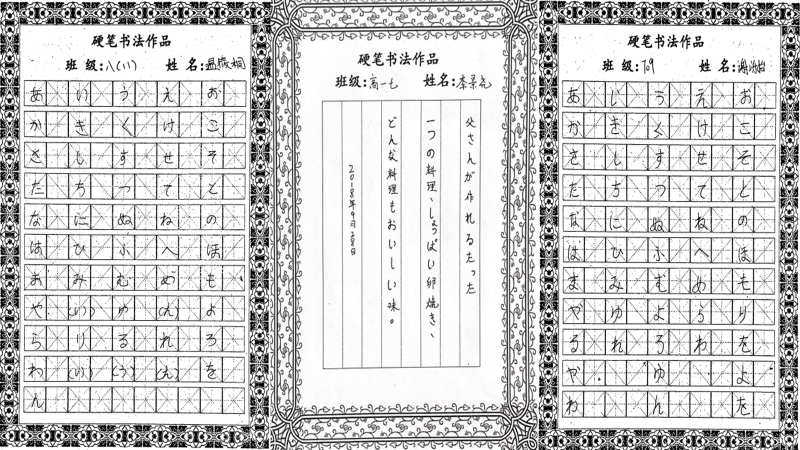 硬笔书法作品
班 级：八(11) 姓 名：
あ い う え お
か き く け こ
さ し す せ そ
た ち つ て と
な に ぬ ね の
は ひ ふ へ ほ
ま み む め も
や (い) ゆ (え) よ
ら り る れ ろ
わ (い) (う) (え) を
ん
硬笔书法作品
班级：高一七 姓名：李景花
父さんが作れるたった
一つの料理、しょっぱい卵焼き、
どんな料理もおいしい味。
2018年9月28日
硬笔书法作品
班 级：709 姓 名：
あ い う え お
か き く け こ
さ し す せ そ
た ち つ て と
な に ぬ ね の
は ひ ふ へ ほ
ま み む め も
や ゆ よ ら り
る れ ろ わ を
や ゆ よ
わ ん を